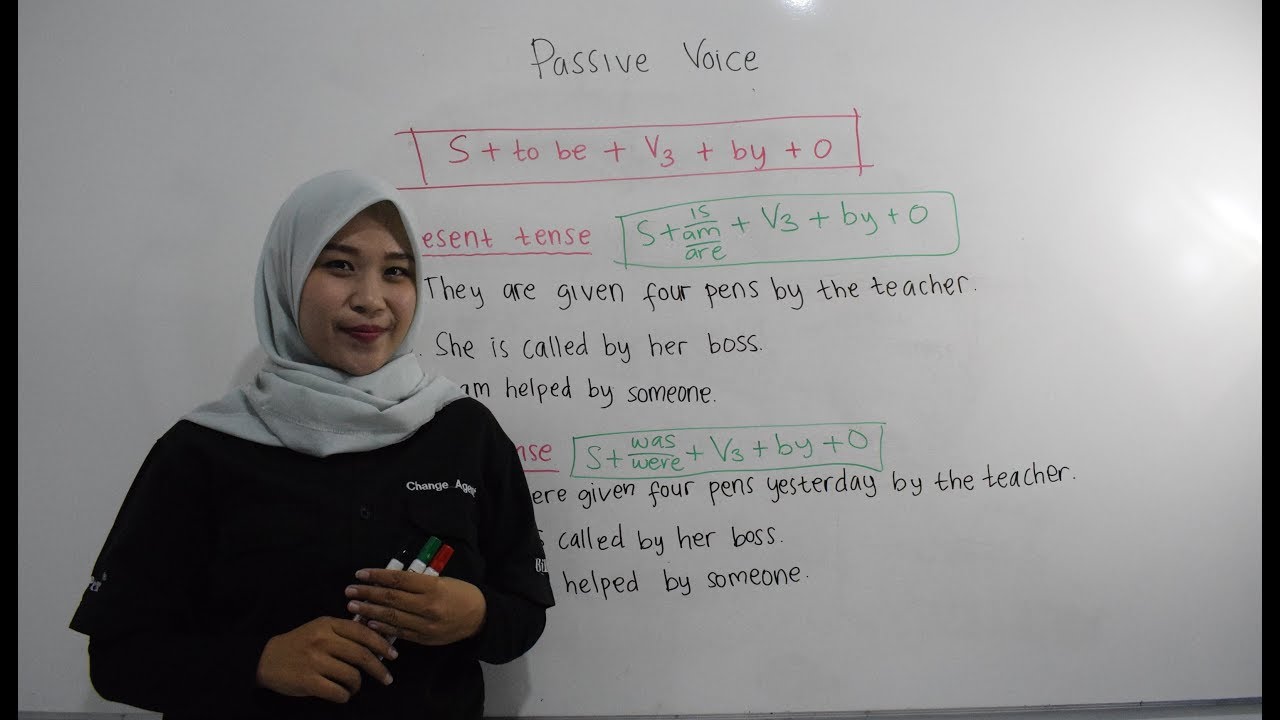 Passive Voice
S + to be + V3 + by + O
esent tense S + is/am/are + V3 + by + O
They are given four pens by the teacher.
. She is called by her boss.
am helped by someone.
nse S + was/were + V3 + by + O
ere given four pens yesterday by the teacher.
s called by her boss.
helped by someone.
Change Age